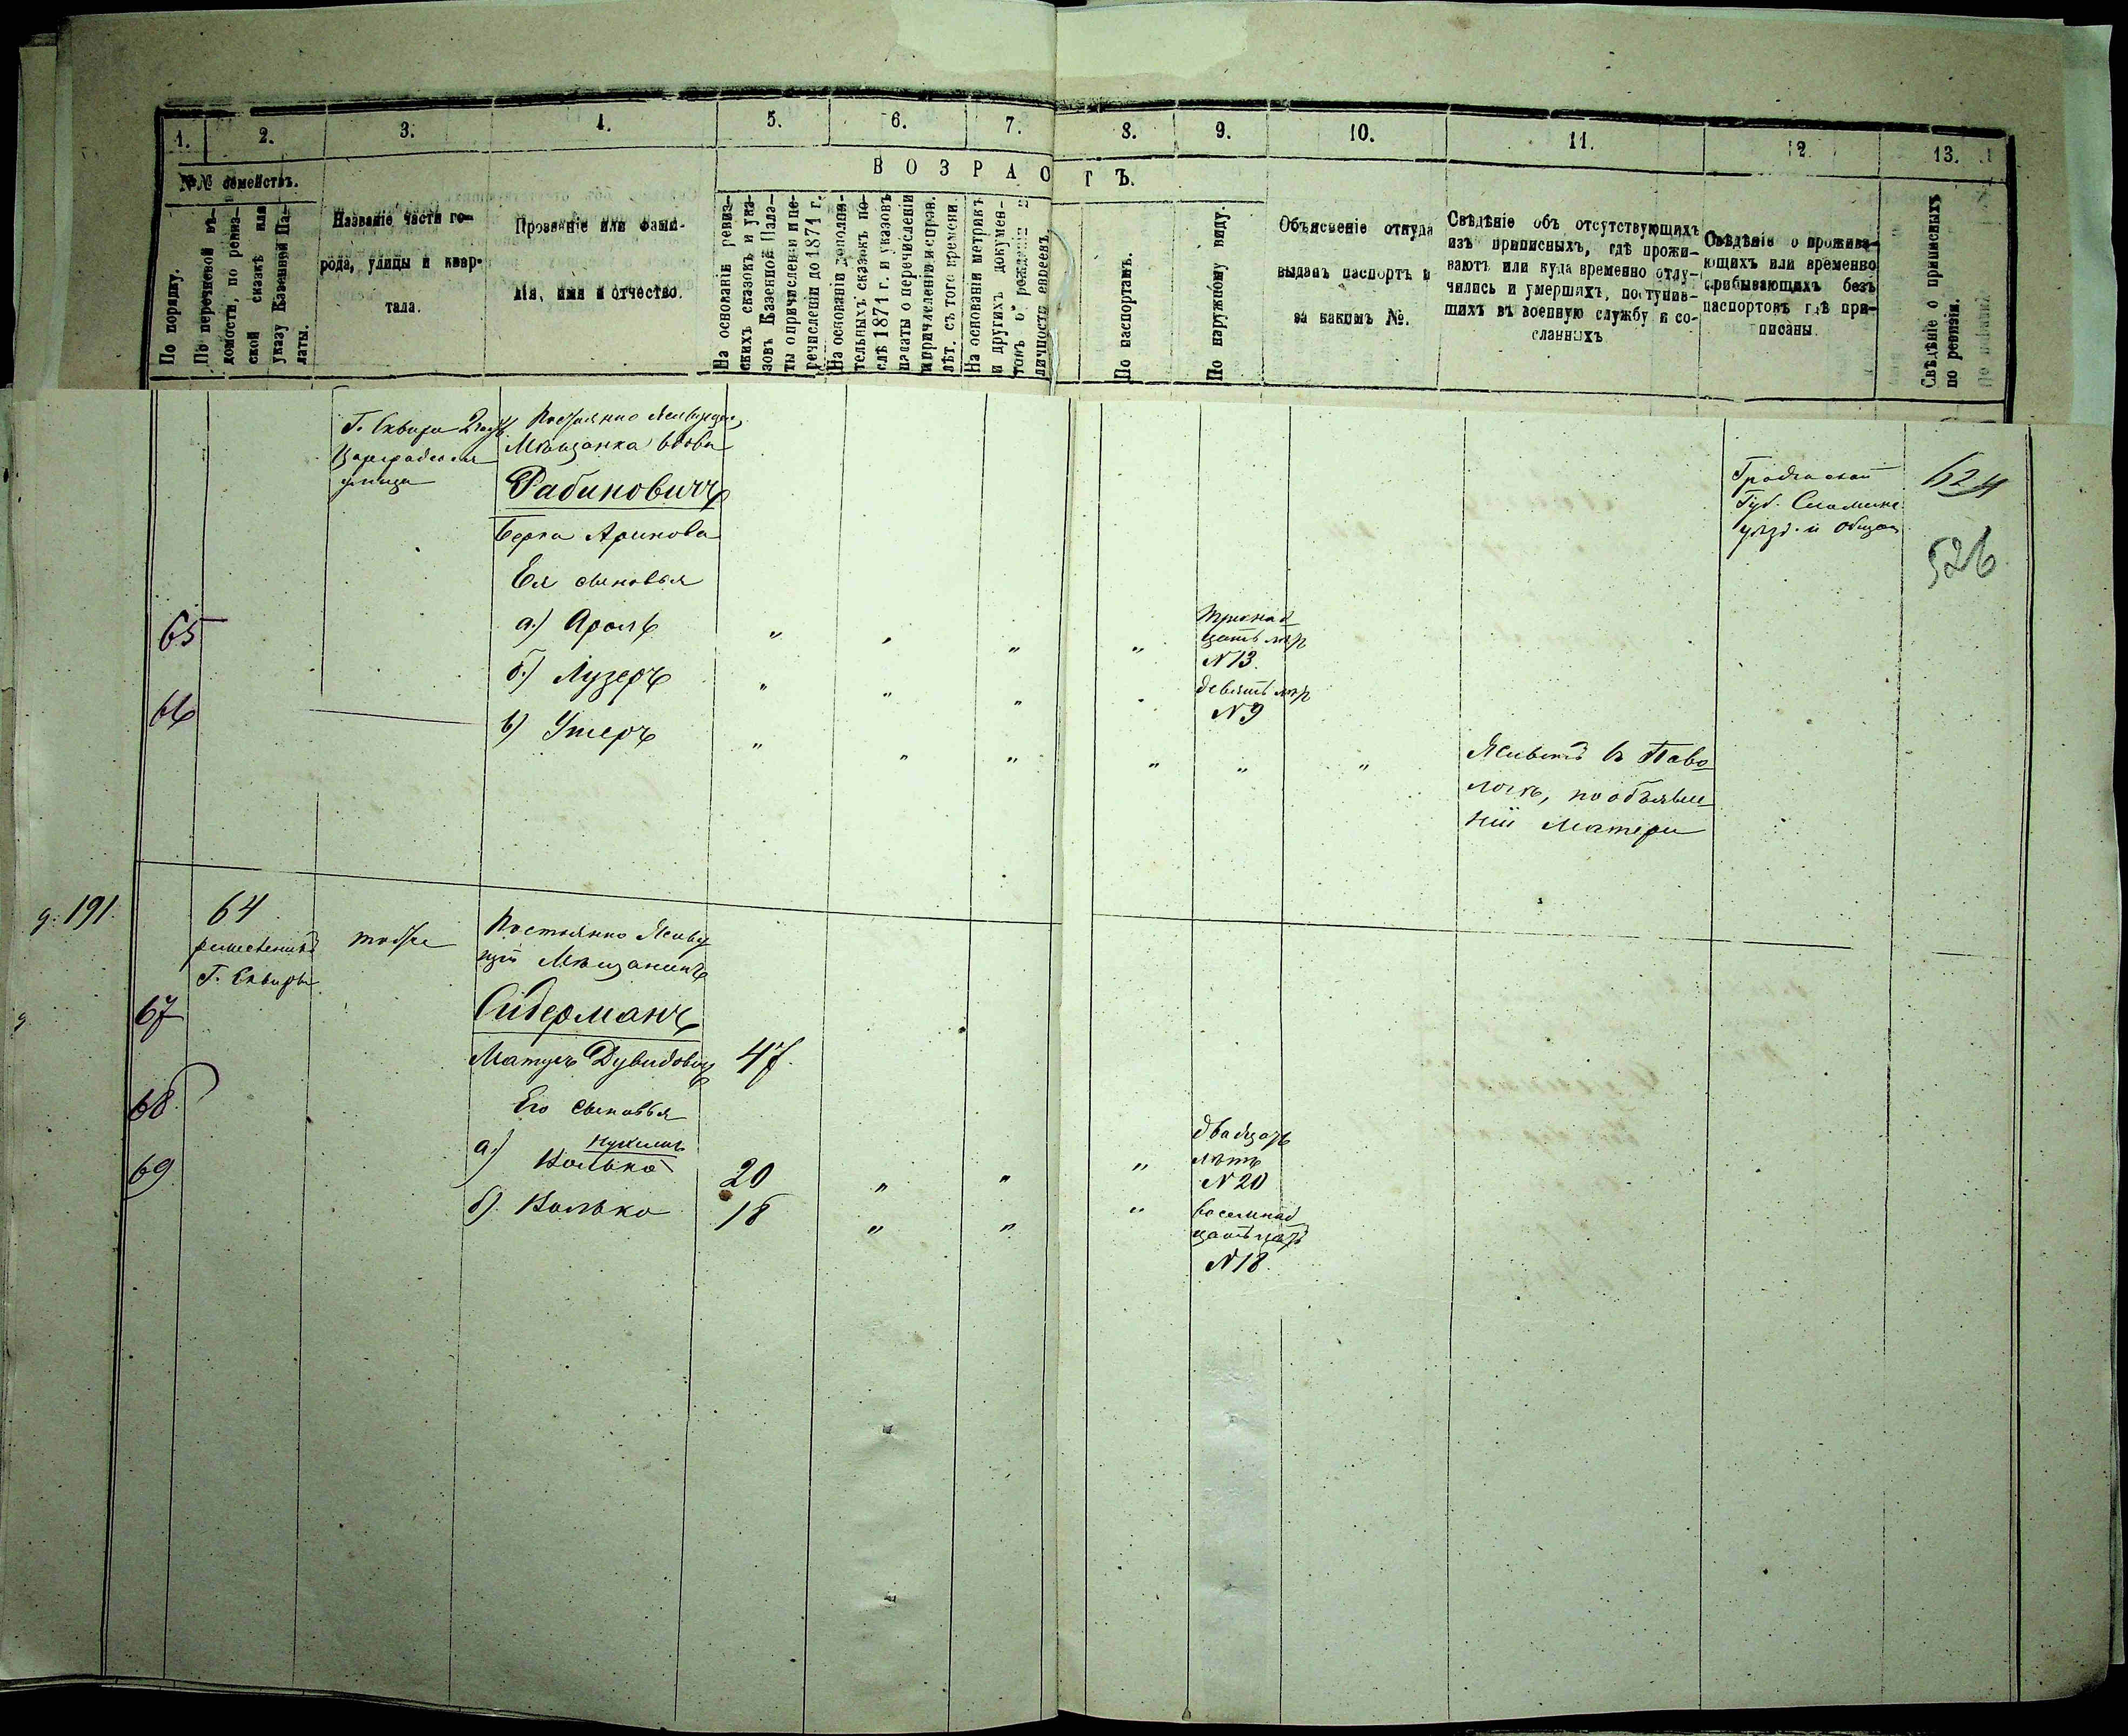 1.
2.
3.
4.
5.
6.
7.
8.
9.
10.
11.
12
13.
№№ семействъ.
По порядку.
По перечневой вѣ-
домости, по ревиз-
ской сказкѣ или
указу Казенной Па-
латы.
Названіе части го-
рода, улицы и квар-
тала.
Прозваніе или фами-
лія, имя и отчество.
ВОЗРАСТЪ.
На основаніи ревиз-
скихъ сказокъ и ука-
зовъ Казенной Пала-
ты о причисленіи и пе-
речисленіи до 1871 г.
На основаніи дополни-
тельныхъ сказокъ по-
слѣ 1871 г. и указовъ
палаты о перечисленіи
и причисленіи и справ.
лѣт. съ того времени.
На основаніи метрикъ
и другихъ докумен-
товъ о рожденіи и
личности евреевъ.
По паспортамъ.
По наружному виду.
Объясненіе откуда
выданъ паспортъ и
за какимъ №.
Свѣдѣніе объ отсутствующихъ
изъ приписныхъ, гдѣ прожи-
ваютъ или куда временно отлу-
чились и умершихъ, поступив-
шихъ въ военную службу и со-
сланныхъ
Свѣдѣніе о прожива-
ющихъ или временно
прибывающихъ безъ
паспортовъ гдѣ при-
писаны.
Свѣдѣніе о приписныхъ
по ревизіи.
Г. Сквира 2 часть
улица
Постоянно
Мѣщанка вдова
Рабиновичъ
Берка Аринова
Ея сыновья
65
а.) Аронъ
" " " "
тринад
цать лѣтъ
N 13.
66
б.) Лузеръ
" " " "
девять лѣтъ
N 9
в) Ушеръ
" " " " " "
Живетъ въ Паво
лочѣ, по объявле
нію матери
Гродненской
Губ. Слонимс
уѣзд. и общес
624
526
д. 191.
64
Г. Сквиры
тоже
Постоянно Живу
щій Мѣщанинъ
67
Сидерманъ
Матусъ Дувидовичъ 47
68
Его сыновья
69
а.)
Нолько
20 " " "
двадцать
лѣтъ
N 20
б). Нолько 18 " " "
восемнад
цать
N 18.